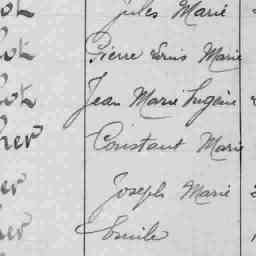 ot Jules Marie
ot Pierre Louis Marie
ot Jean Marie Eugène
her Constant Marie
er Joseph Marie
her Emile